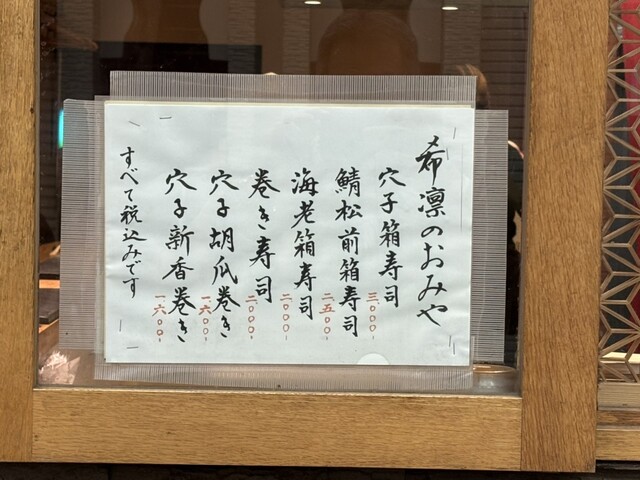 希凛のおみや
穴子箱寿司 三〇〇〇-
鯖松前箱寿司 二五〇〇-
海老箱寿司 二〇〇〇-
巻き寿司 二〇〇〇-
穴子胡瓜巻き 一六〇〇-
穴子新香巻き 一六〇〇-
すべて税込みです